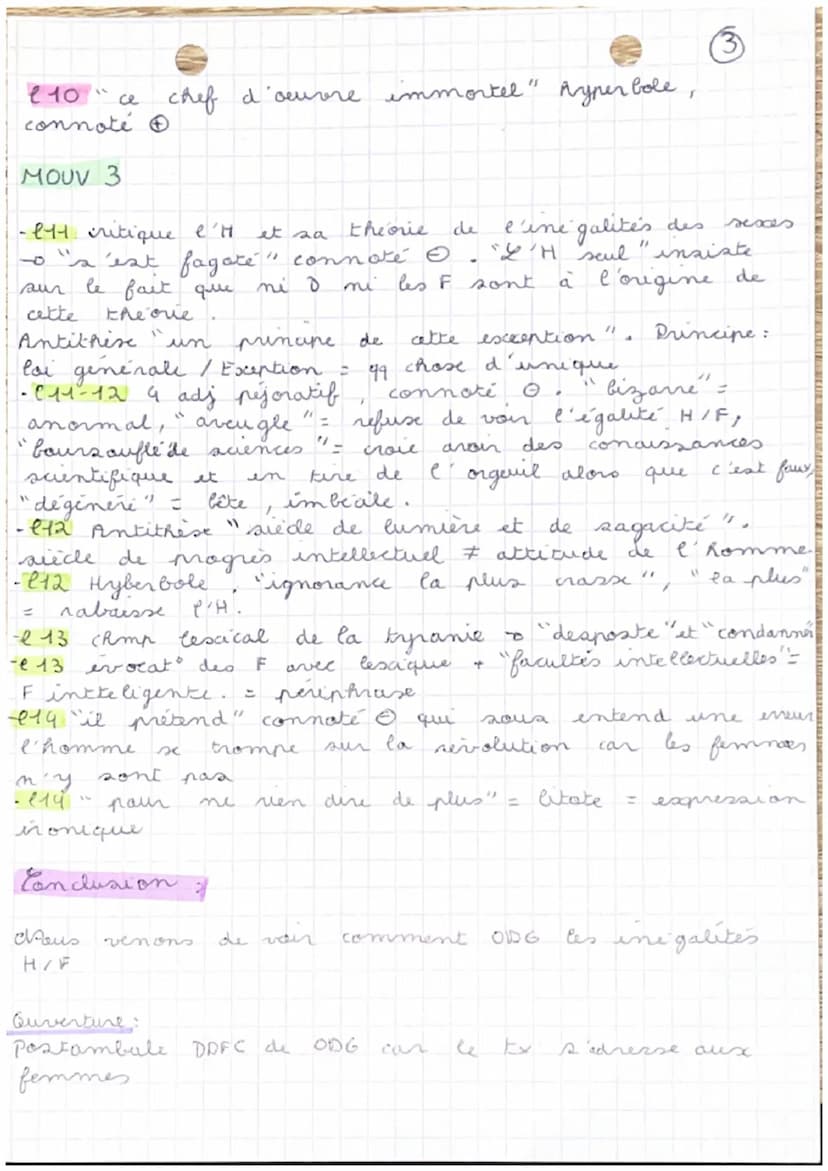 3
l10 "ce chef d'oeuvre immortel" Hyperbole,
connoté ⊕
MOUV 3
- l11 critique l'H et sa théorie de l'inégalités des sexes
→ "s'est fagoté" connoté ⊖. "L'H seul" insiste
sur le fait que ni D ni les F sont à l'origine de
cette théorie.
Antithèse "un principe de cette exception". Principe :
loi générale / Exception = qq chose d'unique
- l11-12 4 adj péjoratif, connoté ⊖. "bizarre" =
anormal, "aveugle" = refuse de voir l'égalité H/F,
"boursouflé de sciences" = croie avoir des conaissances
scientifique et en tire de l'orgeuil alors que c'est faux,
"dégénéré" = bête, imbécile.
- l12 Antithèse "siècle de lumière et de sagacité".
siècle de progrès intellectuel ≠ attitude de l'homme.
- l12 Hyberbole, "ignorance la plus crasse", "la plus"
= rabaisse l'H.
- l13 chmp lexical de la tyranie → "desposte" et "condamné
- l13 évocat° des F avec lexique + "facultés intellectuelles" =
F intteligente. = périphrase
- l14 "il prétend" connoté ⊖ qui sous entend une erreur
l'homme se trompe sur la révolution car les femmes
n'y sont pas
- l14 "pour ne rien dire de plus" = litote = expression
ironique
Conclusion :
Nous venons de voir comment ODG les inégalités
H/F
Ouverture :
Postambule DDFC de ODG car le tx s'adresse aux
femmes